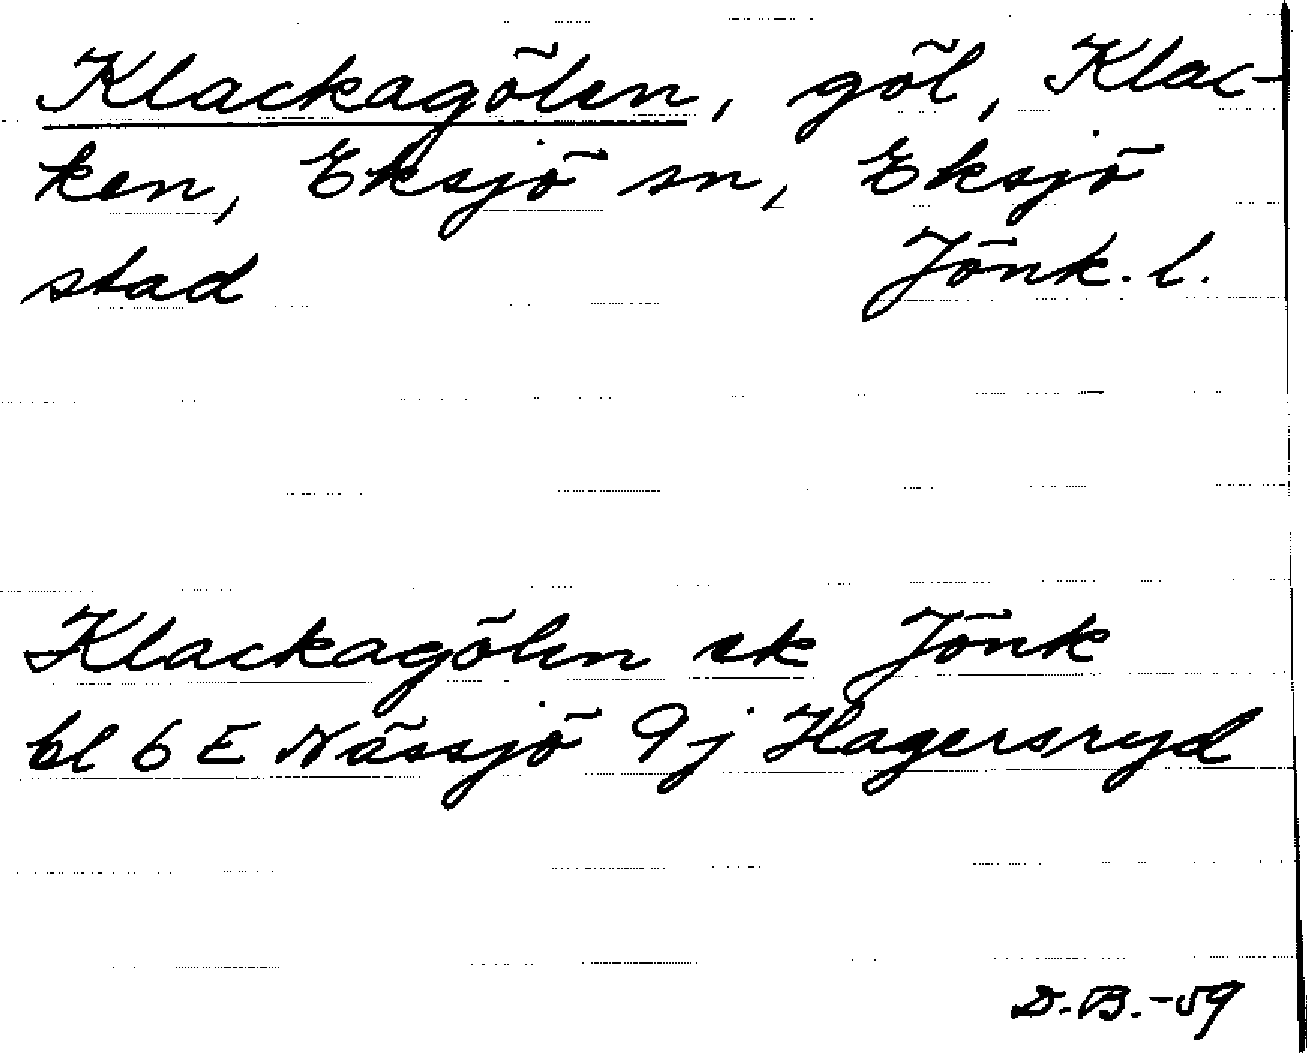 Klackagölen, göl, Klac-
ken, Eksjö sn, Eksjö
stad Jönk. l.
Klackagölen ek Jönk
bl 6 E Nässjö 9j Hagersryd
D.B.-59